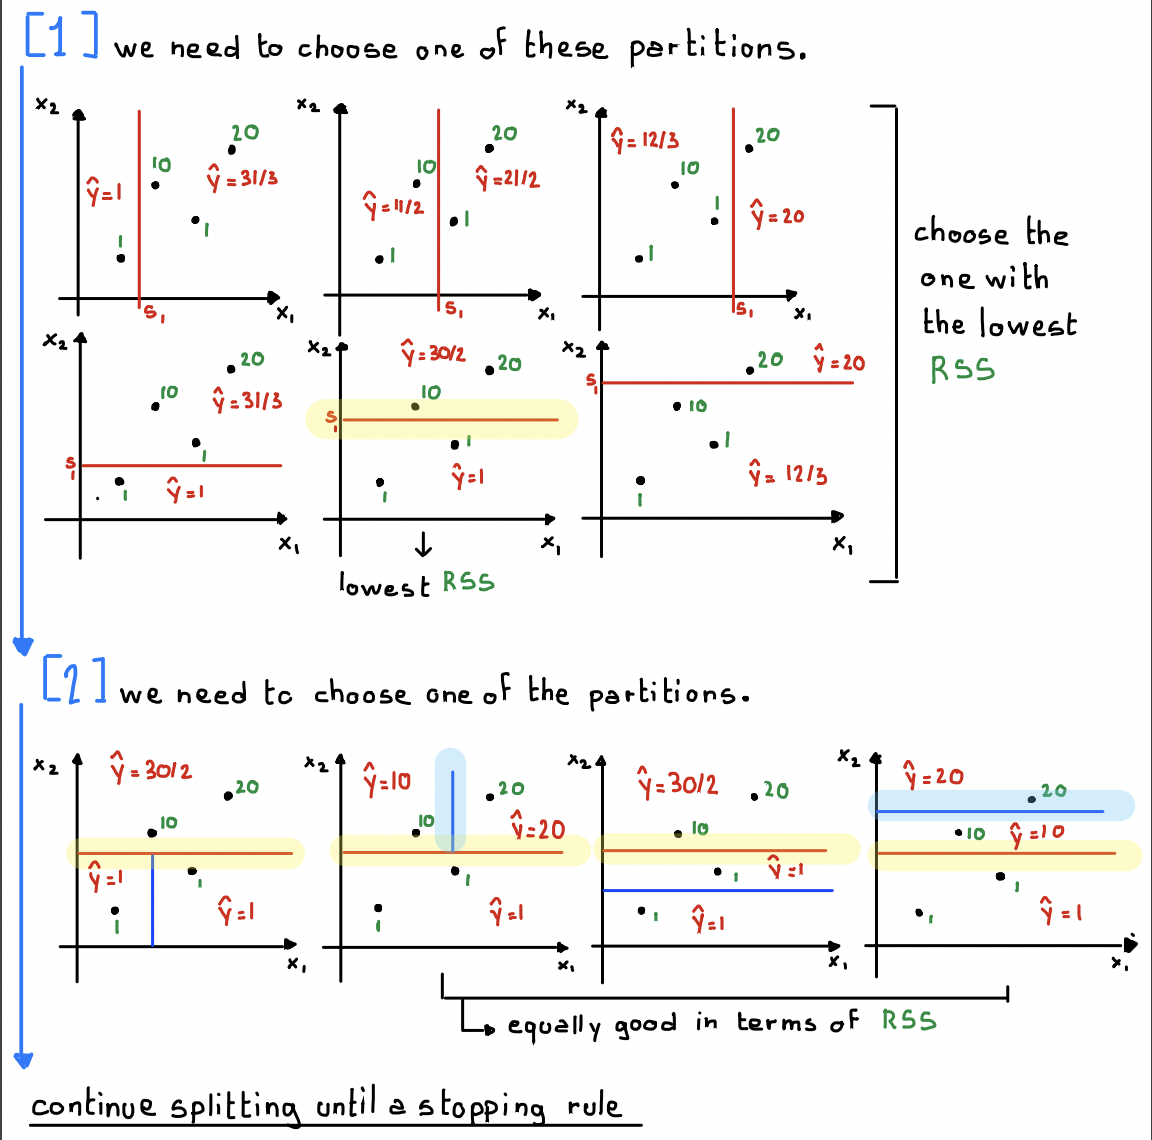 [1] we need to choose one of these partitions.
x₂ 20 10 ŷ=1 ŷ=31/3 1 1 s₁ x₁
x₂ 20 10 ŷ=21/2 ŷ=11/2 1 1 s₁ x₁
x₂ ŷ=12/3 20 10 1 ŷ=20 1 s₁ x₁
choose the
one with
the lowest
RSS
x₂ 20 10 ŷ=31/3 1 s₁ 1 ŷ=1 x₁
x₂ ŷ=30/2 20 10 s₁ 1 ŷ=1 1 x₁
x₂ 20 ŷ=20 s₁ 10 1 ŷ=12/3 1 x₁
lowest RSS
[2] we need to choose one of the partitions.
x₂ ŷ=30/2 20 10 ŷ=1 1 1 ŷ=1 x₁
x₂ ŷ=10 20 10 ŷ=20 1 1 ŷ=1 x₁
x₂ ŷ=30/2 20 10 1 ŷ=1 1 ŷ=1 x₁
x₂ ŷ=20 20 10 ŷ=10 1 1 ŷ=1 x₁
equally good in terms of RSS
continue splitting until a stopping rule